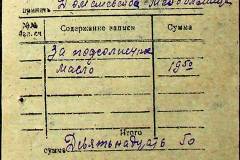 принять
№ бал. сч. Содержание записи Сумма
За подсолнечное
масло 19 50
Итого
сумма Девятнадцать 50